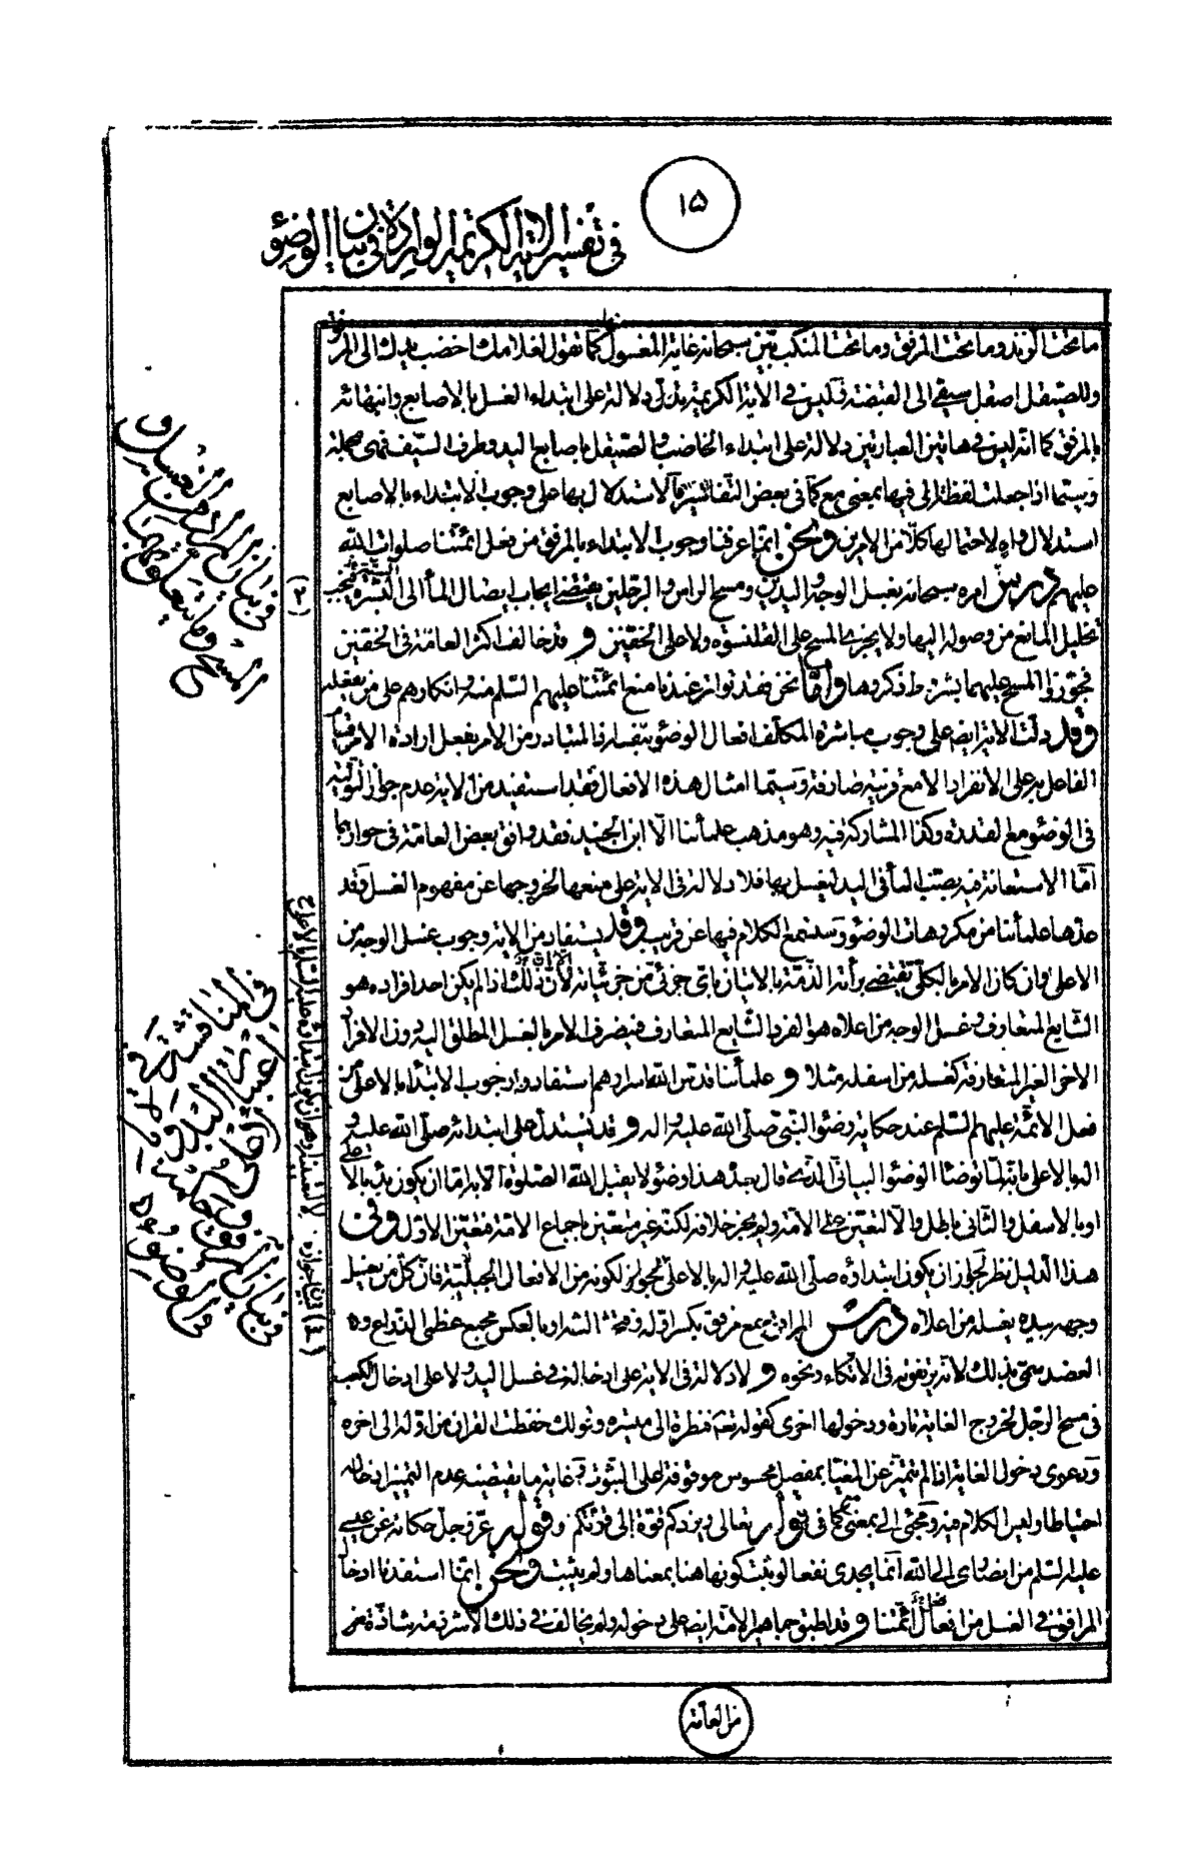 ١٥
في تفسير الاية الكريمة الواردة في بيان الوضوء
ما تحت الزند وما تحت المرفق وما تحت المنكب بين سبحانه غاية المغسول منها كما تقول لغلامك اخضب يدك الى الزند
وللصيقل اصقل سيفي الى القبضة فليس في الاية الكريمة دلالة على ابتداء الغسل بالاصابع وانتهائه
بالمرفق كما انه ليس في هاتين العبارتين دلالة على ابتداء الخاضب والصيقل باصابع اليد وطرف السيف فهي مجملة
وسيما اذا جعلت لفظة الى فيها بمعنى مع كما في بعض التفاسير فالاستدلال بها على وجوب الابتداء بالاصابع
استدلال واه لاحتمالها كلا من الامرين ونحن انما عرفنا وجوب الابتداء بالمرفق من فعل ائمتنا صلوات الله
عليهم درس امره سبحانه بغسل الوجه واليدين ومسح الراس والرجلين يقتضي ايجاب ايصال الماء الى البشرة فيجب
تخليل المانع من وصوله اليها ولا يجزي المسح على القلنسوة ولا على الخفين وقد خالف اكثر العامة في الخفين
فجوزوا المسح عليهما بشروط ذكروها واما نحن فقد تواتر عندنا منع ائمتنا عليهم السلم منه وانكارهم على من يفعله
وقد دلت الاية ايضا على وجوب مباشرة المكلف افعال الوضوء بنفسه اذ المتبادر من الامر بفعل ارادة الامر قيام
الفاعل به على الانفراد الا مع قرينة صارفة وسيما امثال هذه الافعال فقد استفيد من الاية عدم جواز التولية
في الوضوء مع القدرة وكذا المشاركة فيه وهو مذهب علمائنا الا ابن الجنيد فقد وافق بعض العامة في جوازها
اما الاستعانة فيه بصب الماء في اليد ليغسل بها فلا دلالة في الاية على منعها لخروجها عن مفهوم الغسل وقد
عدها علمائنا من مكروهات الوضوء وستسمع الكلام فيها عن قريب وقد يستفاد من الاية وجوب غسل الوجه من
الاعلى وان كان الامر بالكلي يقتضي براءة الذمة بالاتيان باي جزئي من جزئياته لان ذلك اذا لم يكن احد افراده هو
الشايع المتعارف وغسل الوجه من اعلاه هو الفرد الشايع المتعارف فينصرف الامر بالغسل المطلق اليه دون الافراد
الاخر الغير المتعارفة كغسله من اسفله مثلا وعلمائنا قدس الله اسرارهم استفادوا وجوب الابتداء بالاعلى من
فعل الائمة عليهم السلم عند حكاية وضوء النبي صلى الله عليه واله وقد يستدل على ابتدائه صلى الله عليه و
اله بالاعلى بانه لما توضأ الوضوء البياني الذي قال بعده هذا وضوء لا يقبل الله الصلوة الا به اما ان يكون بدء بالاعلى
او بالاسفل والثاني باطل والا لتعين على الامة ولم يجز خلافه لكنه غير متعين باجماع الامة فتعين الاول وفي
هذا الدليل نظر لجواز ان يكون ابتداؤه صلى الله عليه واله بالاعلى لكونه من الافعال الجبلية فان كل من يغسل
وجهه بيده يغسله من اعلاه درس المرافق جمع مرفق بكسر اوله وفتح ثالثه او بالعكس مجمع عظمي الذراع و
العضد سمي بذلك لانه يرتفق به في الاتكاء ونحوه ولا دلالة في الاية على ادخاله في غسل اليد ولا على ادخال الكعب
في مسح الرجل لخروج الغاية تارة ودخولها اخرى كقوله تعالى فنظرة الى ميسرة وقولك حفظت القران من اوله الى اخره
ودعوى دخول الغاية اذا لم تتميز عن المغيا بمفصل محسوس موقوفة على الثبوت وغاية ما يقتضيه عدم التميز ادخاله
احتياطا وليس الكلام فيه ومجئ الى بمعنى مع كما في قوله تعالى ويزدكم قوة الى قوتكم وقوله عز وجل حكاية عن عيسى
عليه السلم من انصاري الى الله انما يجدي نفعا لو ثبت كونها هنا بمعناها ولم يثبت ونحن انما استفدنا ادخال
المرافق في الغسل من افعال ائمتنا وقد اطبق جماهير الامة ايضا على دخوله ولم يخالف في ذلك الا شرذمة شاذة
من العامة
في بيان المراد من الغسل و
المسح وما يتعلق بهما
في المناقشة في
في بيان المرفق وحكمه
في الوضوء
(٣)
(٤)